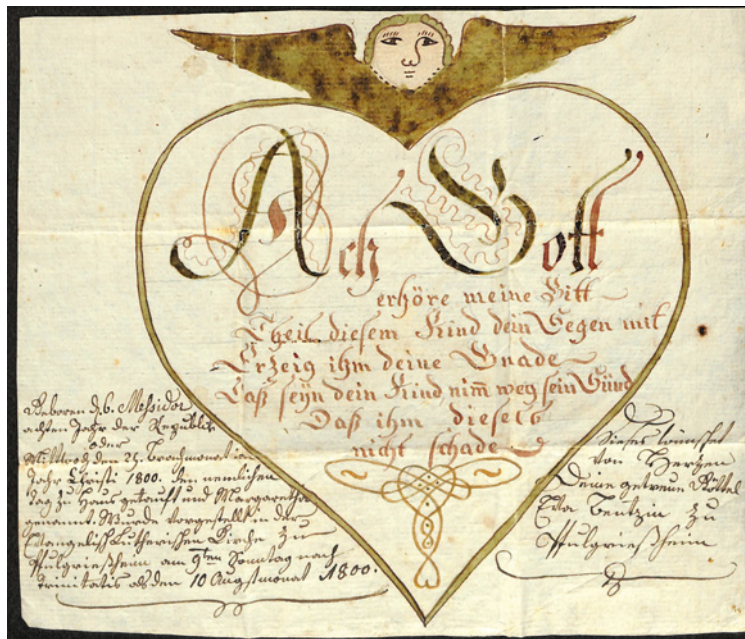 Ach Gott
erhöre meine Bitt
Theil diesem Kind dein Segen mit
Erzeig ihm deine Gnade
Laß seyn dein Kind, nim̄ weg sein Sünd
Daß ihm dieselb
nicht schade
Geboren d. 6. Messidor
achten Jahr der Republik
oder
Mittwoch den 25. Brachmonat im
Jahr Christi 1800. den nemlichen
Tag zu Haus getauft und Margaretha
genannt. Wurde vorgestellt in der
Evangelisch Lutherischen Kirche zu
Pfulgrießheim am 9ten Sonntag nach
Trinitatis als den 10 Augstmonat 1800.
Dieses wünschet
von Herzen
Deine getreue Göttel
Eva zu
Pfulgrießheim